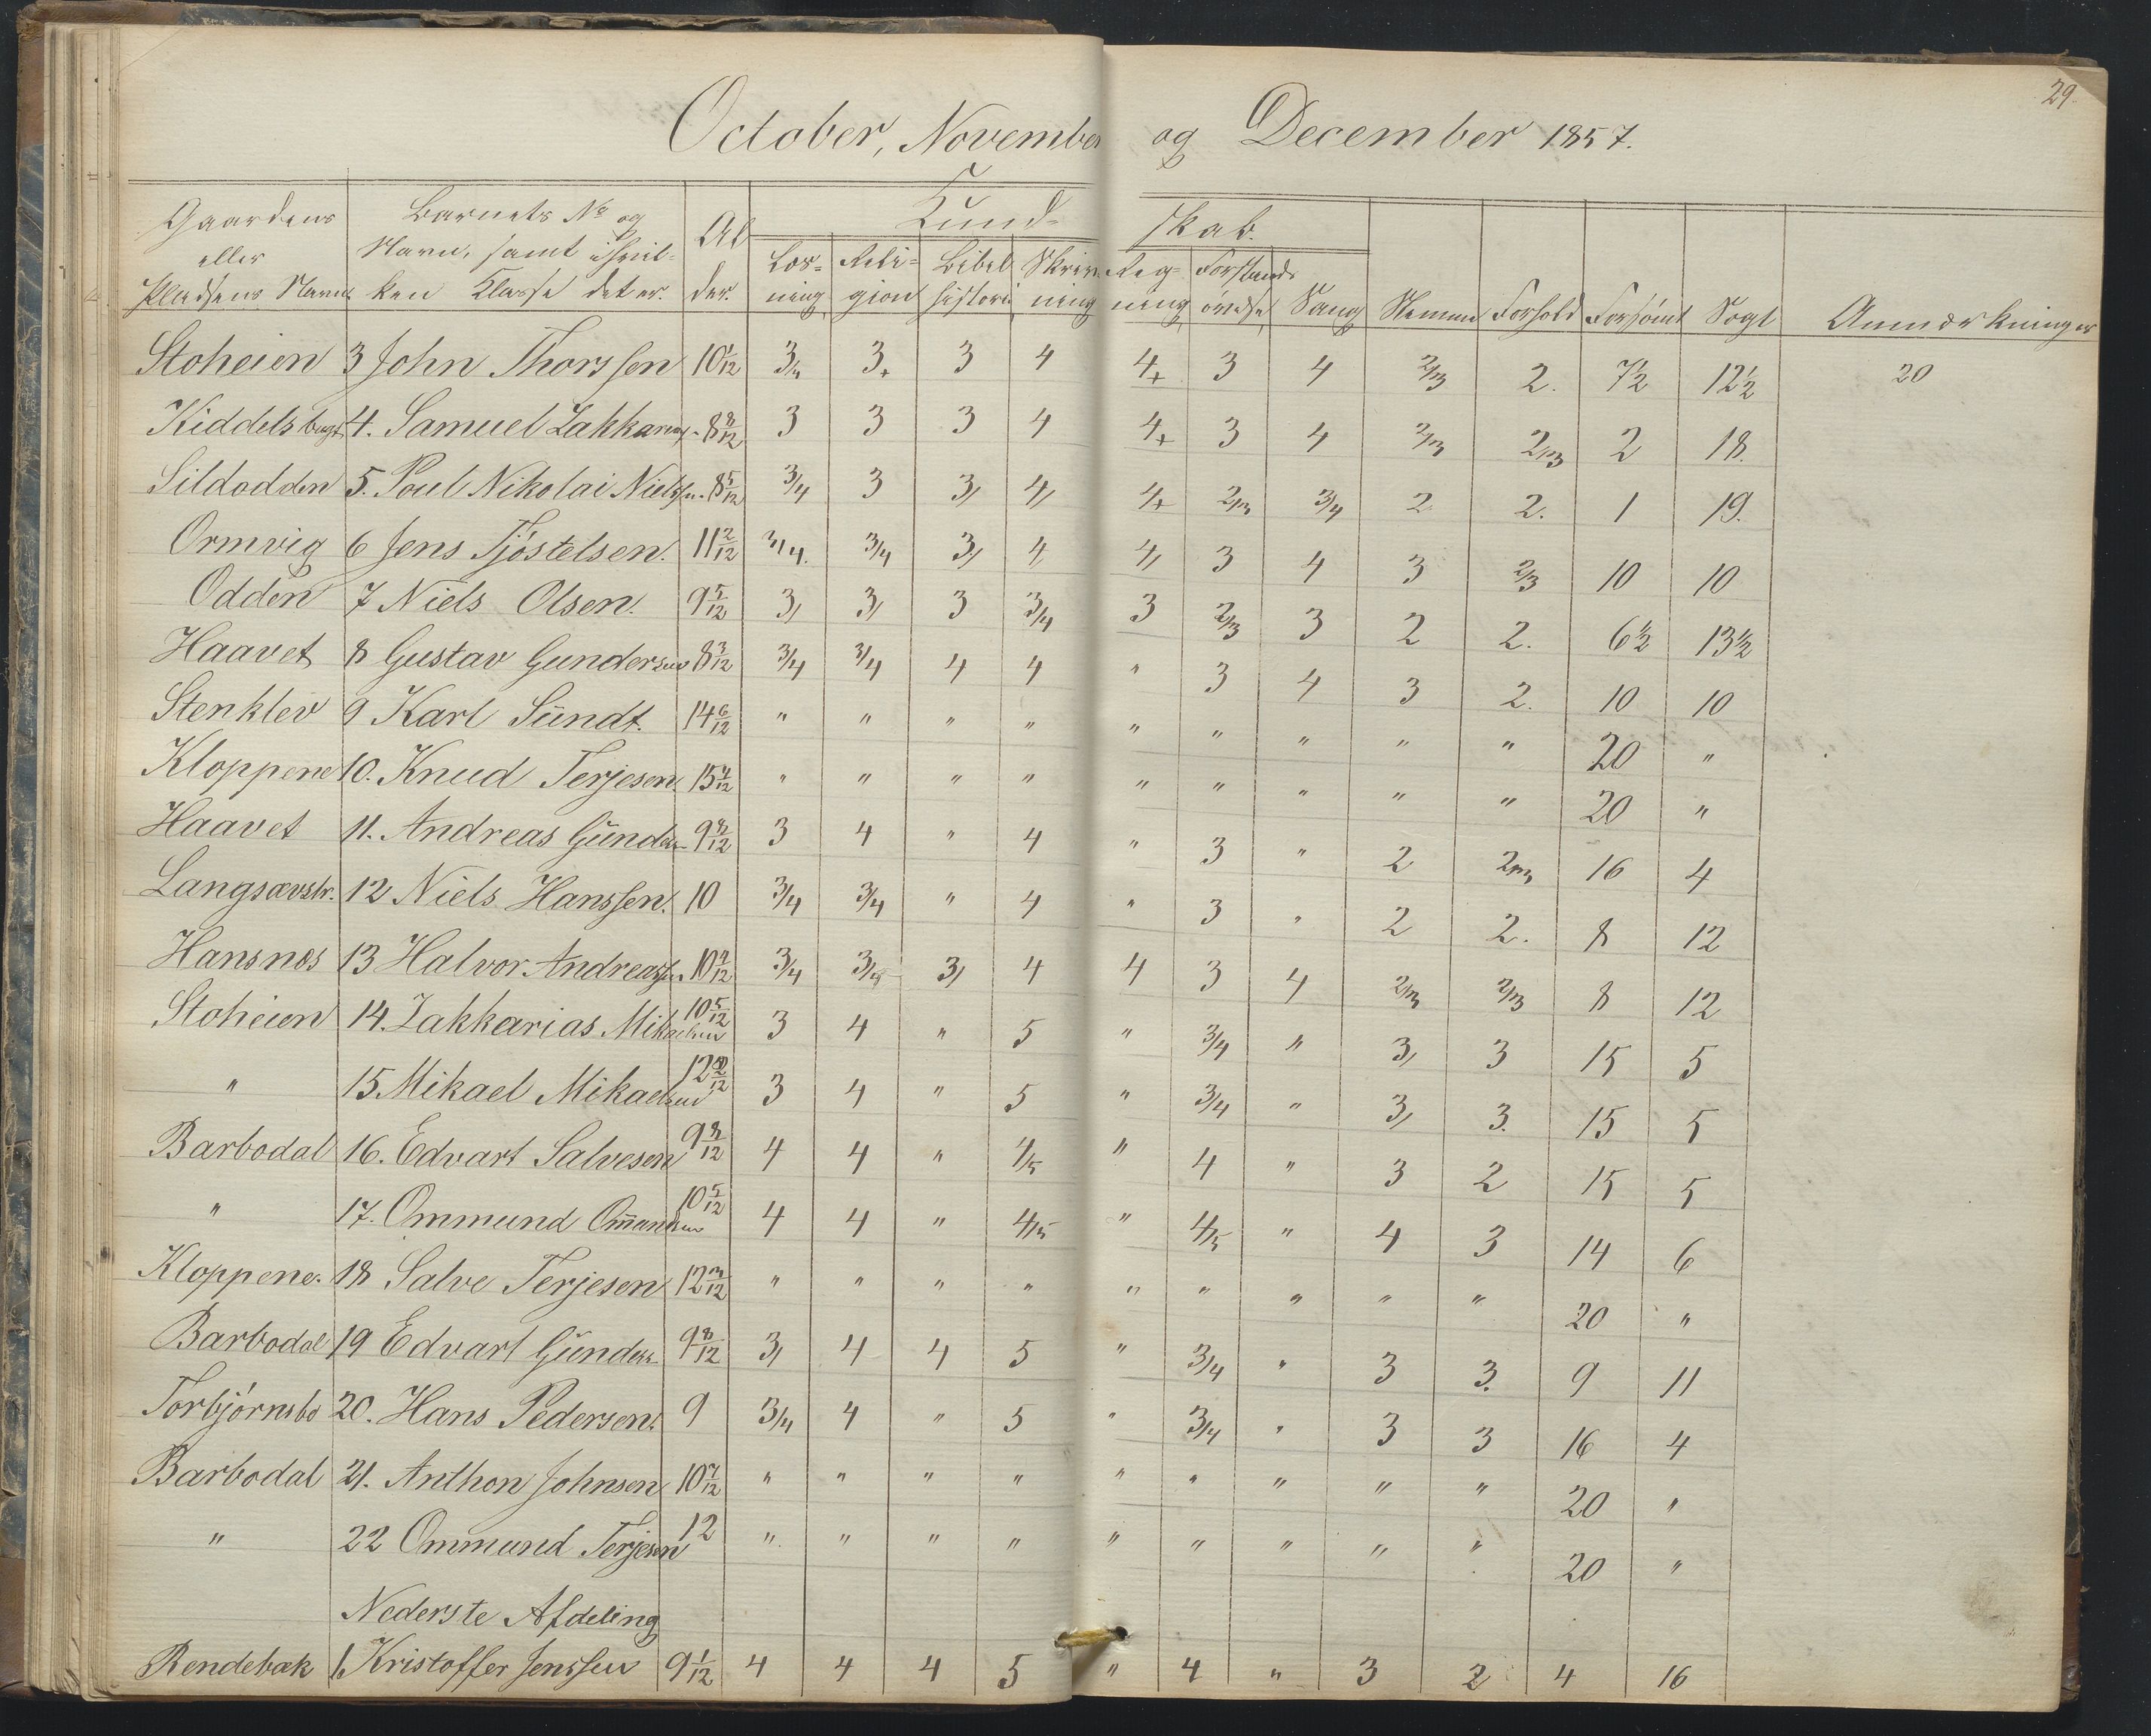 29.
October, November og December 1857.
Gaardens eller Pladsens Navn | Barnets No og Navn, samt i hvilken Klasse det er. | Alder. | Kundskab. | Læsning | Religion | Bibelhistorie | Skrivning | Regning | Forstandsøvelse | Sang | Nemme | Forhold | Forsömt | Sögt | Anmærkninger
Stoheien 3 John Thorssen 10 1/12 3/4 3+ 3 4 4+ 3 4 2/3 2. 7 1/2 12 1/2 20
Kiddelsbugt 4. Samuel Zakkarias. 8 8/12 3 3 3 4 4+ 3 4 2/3 2/3 2 18.
Sildodden 5. Poul Nikolai Nielss. 8 5/12 3/4 3 3/ 4/ 4+ 2/3 3/4 2 2. 1 19.
Ormvig 6 Jens Tjöstelsen. 11 2/12 3/4. 3/4 3/ 4 4/ 3 4 3 2/3 10 10
Odden 7 Niels Olsen. 9 5/12 3/ 3/ 3 3/4 3 2/3 3 2 2. 6 1/2 13 1/2
Haavet 8 Gustav Gundersen 8 3/12 3/4 3/4 4 4 " 3 4 3 2. 10 10
Stenklev 9 Karl Sundt. 14 6/12 " " " " " " " " " 20 "
Kloppene 10. Knud Terjesen. 15 4/12 " " " " " " " " " 20 "
Haavet 11. Andreas Gunders. 9 8/12 3 4 " 4 " 3 " 2 2/3 16 4
Langsævstr. 12 Niels Hanssen. 10 3/4 3/4 " 4 " 3 " 2 2. 8 12
Hansnæs 13 Halvor Andreass. 10 4/12 3/4 3/4 3/ 4 4 3 4 2/3 2/3 8 12
Stoheien 14. Zakkarias Mikaelsen 10 5/12 3 4 " 5 " 3/4 " 3/ 3 15 5
" 15 Mikael Mikaelsen 3 4 " 5 " 3/4 " 3/ 3. 15 5
Barbodal 16. Edvart Salvesen 9 8/12 4 4 " 4/5 " 4 " 3 2 15 5
" 17. Ommund Om̄undsen 10 5/12 4 4 " 4/5 " 4/5 " 4 3 14 6
Kloppene. 18 Salve Terjesen 12 3/12 " " " " " " " " " 20 "
Barbodal 19 Edvart Gunders. 9 8/12 3/ 4 4 5 " 3/4 " 3 3. 9 11
Torbjörnsbo 20. Hans Pedersen. 9 3/4 4 " 5 " 3/4 " 3 3 16 4
Barbodal 21. Anthon Johnsen 10 7/12 " " " " " " " " " 20 "
" 22 Ommund Terjesen 12 " " " " " " " " " 20 "
Nederste Afdeling
Rendebæk 1. Kristoffer Jenssen 9 1/12 4 4 4 5 " 4 " 3 2 4 16